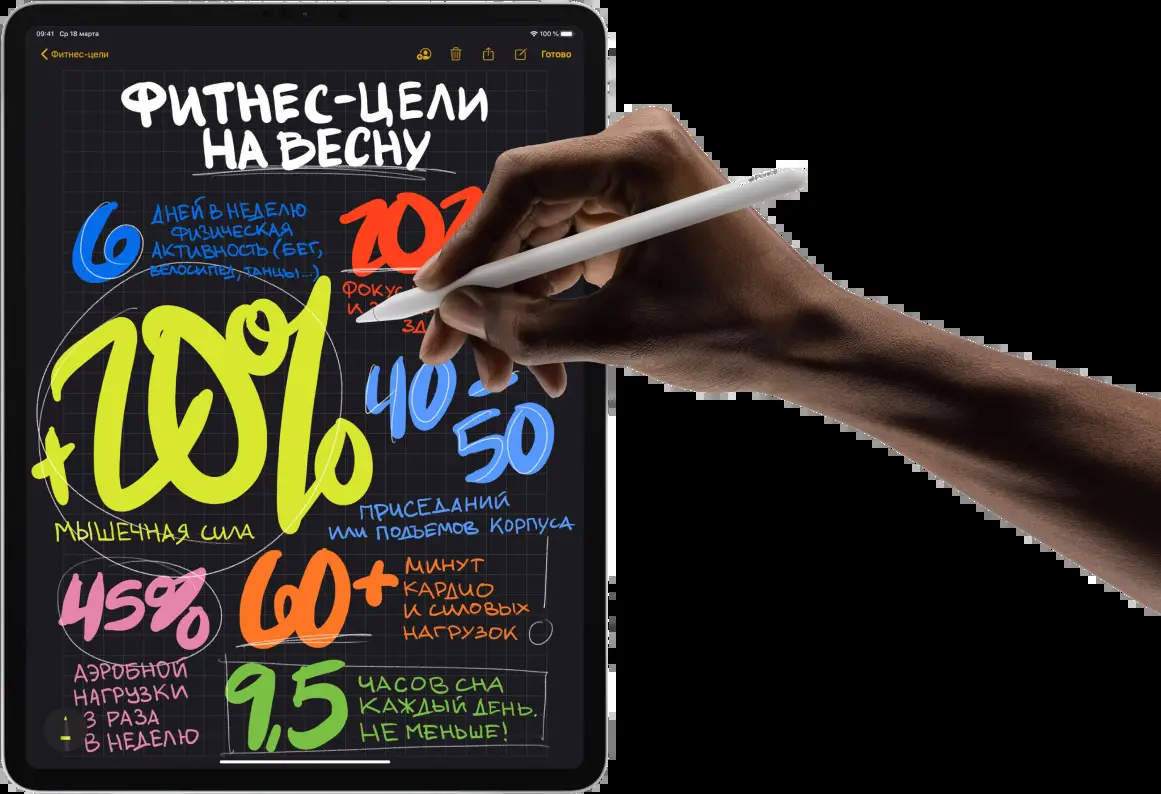 09:41 Ср 18 марта
100 %
Фитнес-цели
Готово
ФИТНЕС-ЦЕЛИ
НА ВЕСНУ
6
ДНЕЙ В НЕДЕЛЮ
ФИЗИЧЕСКАЯ
АКТИВНОСТЬ (БЕГ,
ВЕЛОСИПЕД, ТАНЦЫ...)
+20%
МЫШЕЧНАЯ СИЛА
40-
50
ПРИСЕДАНИЙ
ИЛИ ПОДЪЕМОВ КОРПУСА
45%
АЭРОБНОЙ
НАГРУЗКИ
3 РАЗА
В НЕДЕЛЮ
60+
МИНУТ
КАРДИО
И СИЛОВЫХ
НАГРУЗОК
9,5
ЧАСОВ СНА
КАЖДЫЙ ДЕНЬ.
НЕ МЕНЬШЕ!